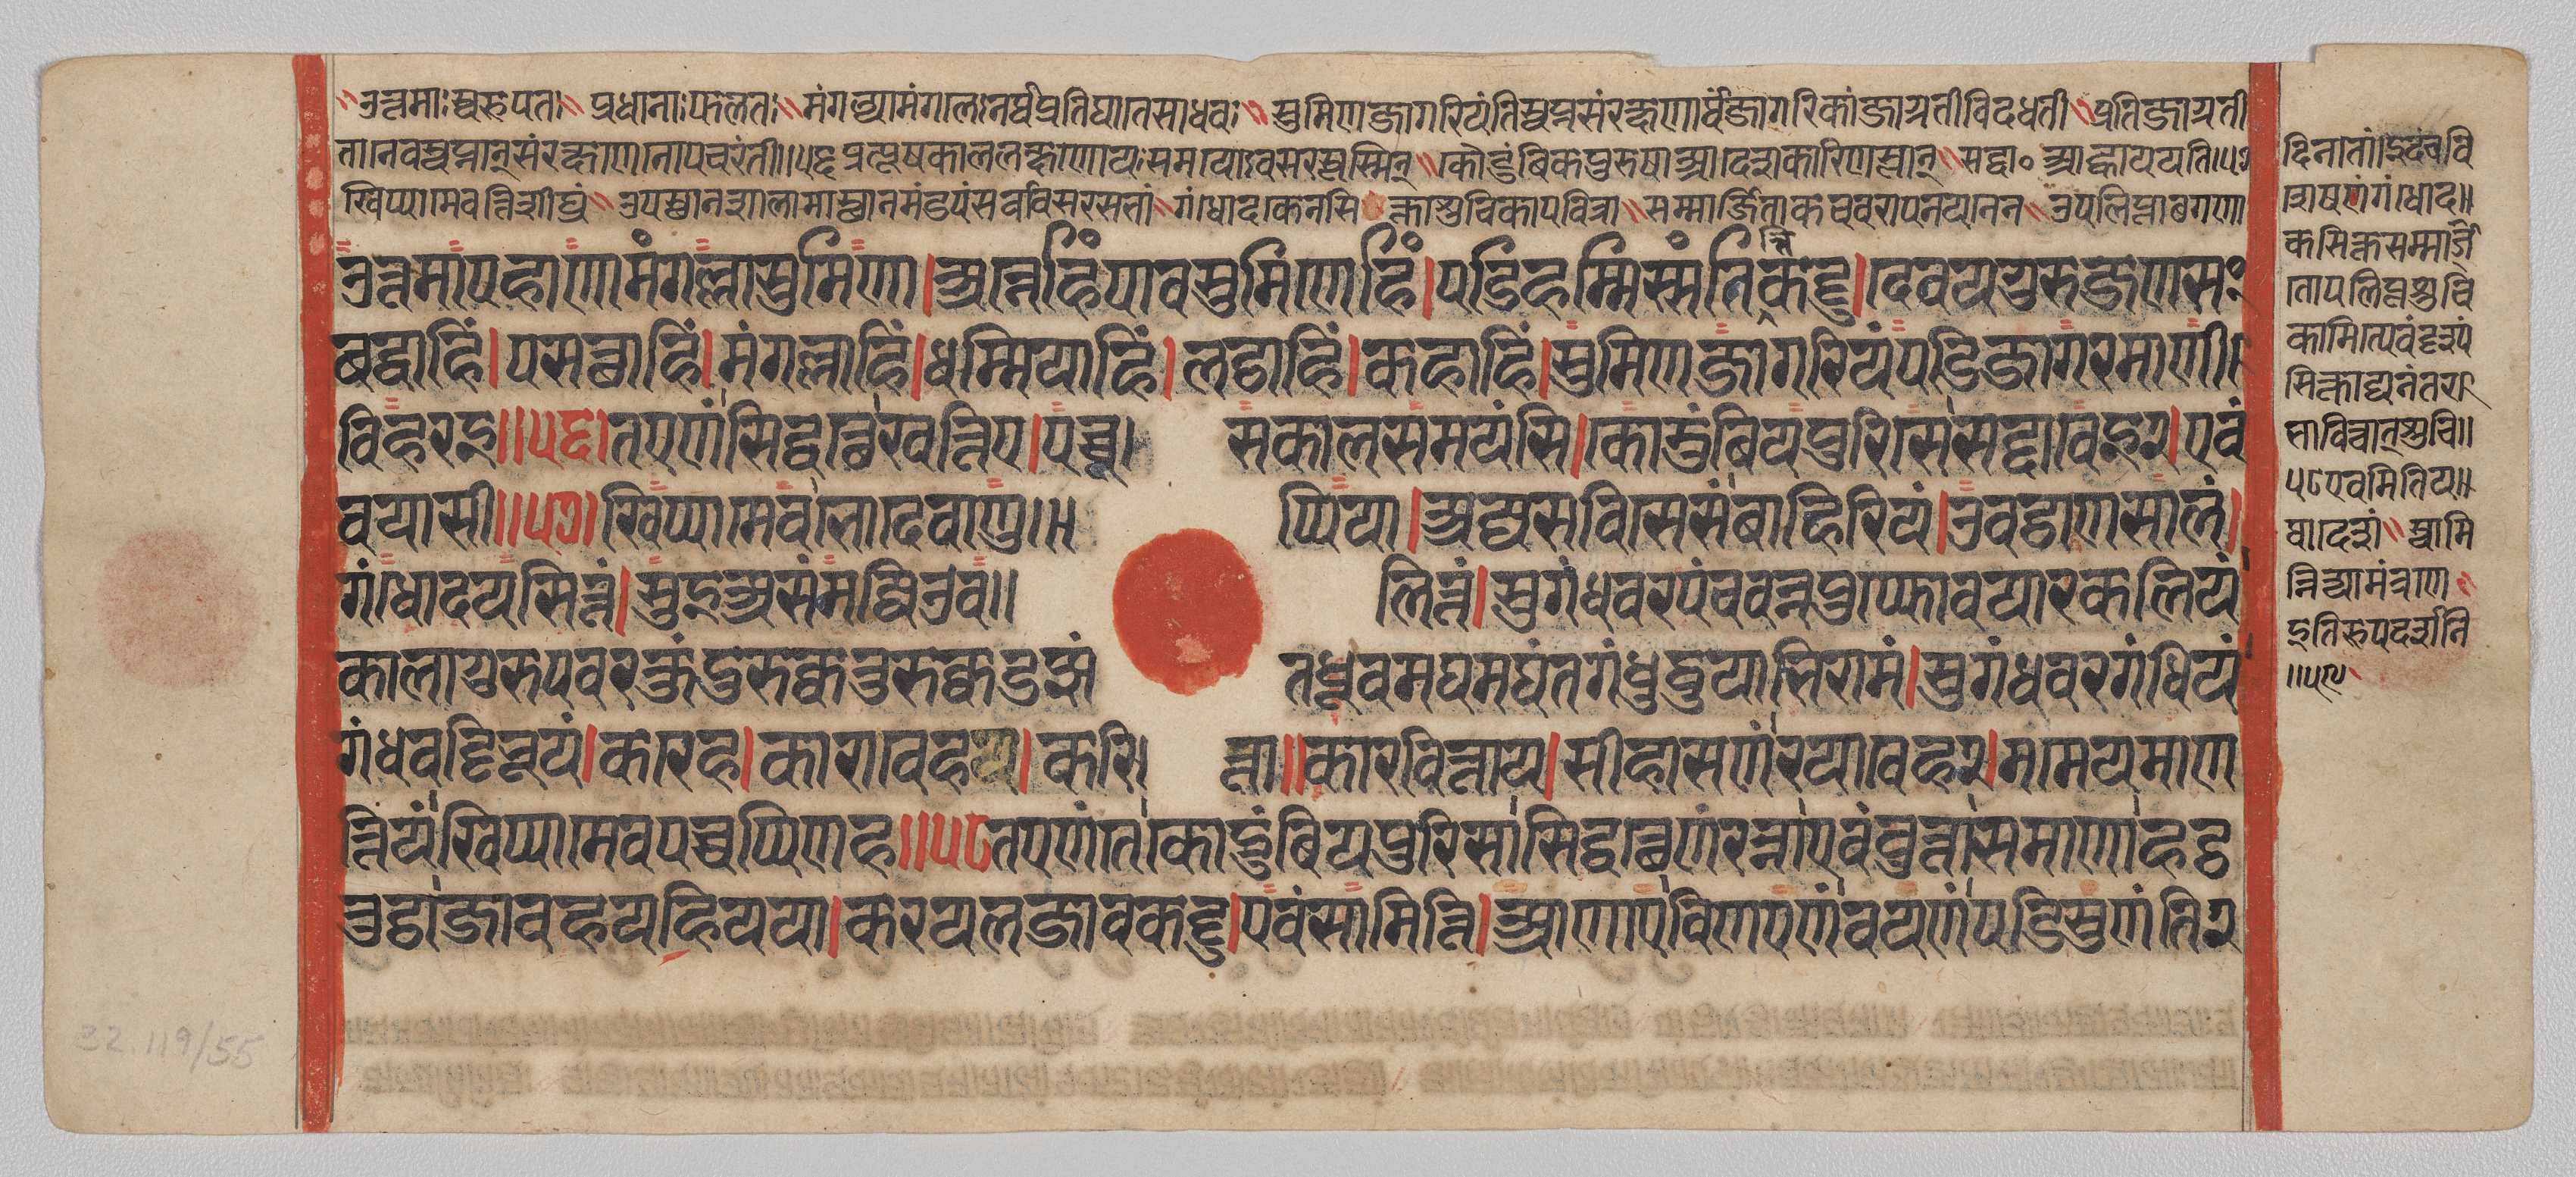 उत्तमाः स्वरूपतः प्रधानाः फलतः मंगल्या मंगले अनर्थप्रतिघाते साधवः सुमिणजागरियंति स्वप्नसंरक्षणार्थं जागरिकां जाग्रती विदधती प्रतिजाग्रती
तानेव स्वप्नान् संरक्षणेनोपचरंती॥५६ प्रत्यूषकाललक्षणो यः समयोऽवसरस्तस्मिन् कौटुंबिकपुरुषान् आदेशकारिणस्तान् सद्दा० आह्वाययति॥५७
खिप्पामेवत्ति शीघ्रं उपस्थानशालामास्थानमंडपं सर्वावसरसत्तां गंधोदकेन सिक्ता शुचिका पवित्रा सम्मार्जिता कचवरापनयनेन उपलिप्ता छगणा
उत्तमा पहाणा मंगल्ला सुमिणा। अन्नेहिं पावसुमिणेहिं। पडिहम्मिस्संति त्ति कट्टु। देवयगुरुजणसं
बद्धाहिं। पसत्थाहिं। मंगल्लाहिं। धम्मियाहिं। लट्ठाहिं। कहाहिं। सुमिणजागरियं पडिजागरमाणी।
विहरइ॥५६। तएणं सिद्धत्थे खत्तिए। पच्चूसकालसमयंसि। कोडुंबियपुरिसे सद्दावेइ२। एवं
वयासी॥५७। खिप्पामेव भो देवाणुप्पिया। अज्ज सविसेसं बाहिरियं। उवट्ठाणसालं।
गंधोदयसित्तं। सुइअसंमज्जिउवलित्तं। सुगंधवरपंचवन्नपुप्फोवयारकलियं
कालागुरुपवरकुंदुरुक्कतुरुक्कडज्झंतधूवमघमघंतगंधुद्धुयाभिरामं। सुगंधवरगंधियं
गंधवट्टिभूयं। करेह। कारावेह य। करित्ता॥ कारवित्ता य। सीहासणं रयावेह२। ममेयमाण
त्तियं खिप्पामेव पच्चप्पिणह॥५८ तएणं ते कोडुंबियपुरिसा सिद्धत्थेणं रन्ना एवं वुत्ता समाणा हट्ठ
तुट्ठा जाव हयहियया। करयल जाव कट्टु। एवं सामित्ति। आणाए विणएणं वयणं पडिसुणंति२
दिना तां इदं च वि
शेषणं गंधोद॥
कसिक्तसम्मार्जि
तोपलिप्तशुचि
कामित्येवं दृश्यं
सिक्ताद्यनंतर
भावित्वात् शुचि॥
५८ एवमिति य॥
थादेशं स्वामि
न्नित्यामंत्रणे
इतिरुपदर्शने
॥५९
32.119/55